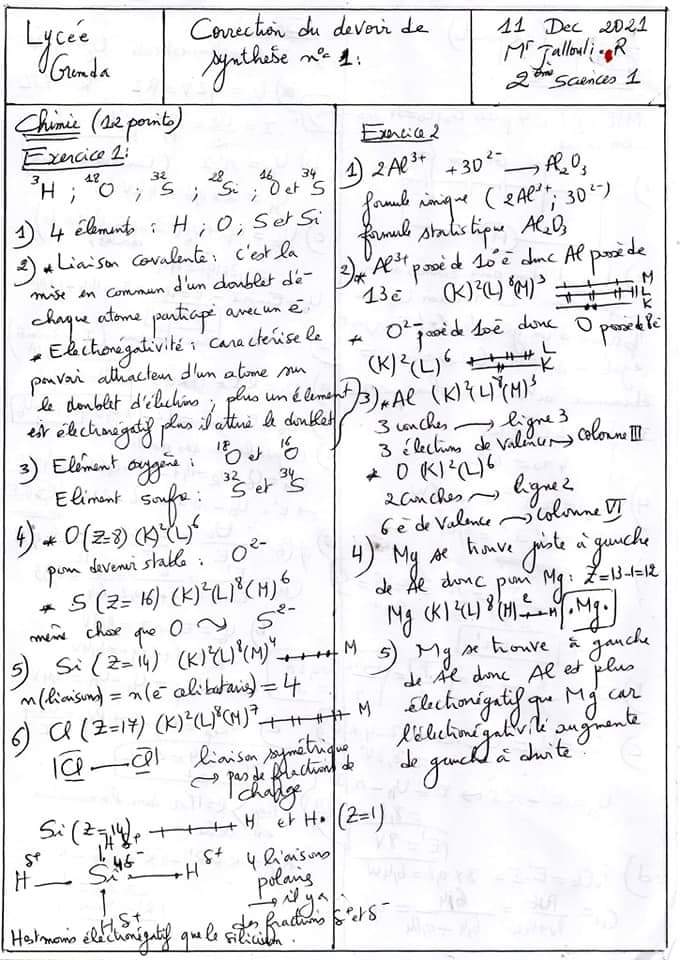 Lycée
Grenda
Correction du devoir de
synthèse n° 1:
11 Dec 2021
Mr Jallouli.R
2ème Sciences 1
Chimie (12 points)
Exercice 1:
³H ; ¹⁸O ; ³²S ; ²⁸Si ; ¹⁶O et ³⁴S
1) 4 éléments : H ; O ; S et Si
2) * Liaison covalente : c'est la
mise en commun d'un doublet d'é-
chaque atome participe avec un é.
* Electronégativité : caractérise le
pouvoir attracteur d'un atome sur
le doublet d'électrons, plus un élément
est électronégatif plus il attire le doublet
3) Elément oxygène : ¹⁸O et ¹⁶O
Elément soufre : ³²S et ³⁴S
4) * O (Z=8) (K)²(L)⁶
pour devenir stable : O²⁻
* S (Z=16) (K)²(L)⁸(M)⁶
même chose que O S²⁻
5) Si (Z=14) (K)²(L)⁸(M)⁴ M
n(liaisons) = n(é célibataires) = 4
6) Cl (Z=17) (K)²(L)⁸(M)⁷ M
|Cl — Cl| liaison symétrique
→ pas de fractions de
charge
Si (Z=14) M et H• (Z=1)
H δ+
δ+ 4δ- δ+
H — Si — H 4 liaisons
polaires
→ il y a
H δ+ des fractions δ+ et δ-
H est moins électronégatif que le silicium.
Exercice 2
1) 2Al³⁺ + 3O²⁻ → Al₂O₃
formule ionique (2Al³⁺ ; 3O²⁻)
formule statistique Al₂O₃
2) * Al³⁺ possède 10 é donc Al possède
13 é (K)²(L)⁸(M)³ M
L
K
* O²⁻ possède 10 é donc O possède 8 é
(K)²(L)⁶ L
K
3) * Al (K)²(L)⁸(M)³
3 couches → ligne 3
3 électrons de valence → colonne III
* O (K)²(L)⁶
2 couches → ligne 2
6 é de valence → colonne VI
4) Mg se trouve juste à gauche
de Al donc pour Mg : Z=13-1=12
Mg (K)²(L)⁸(M)² M •Mg•
5) Mg se trouve à gauche
de Al donc Al et plus
électronégatif que Mg car
l'électronégativité augmente
de gauche à droite.